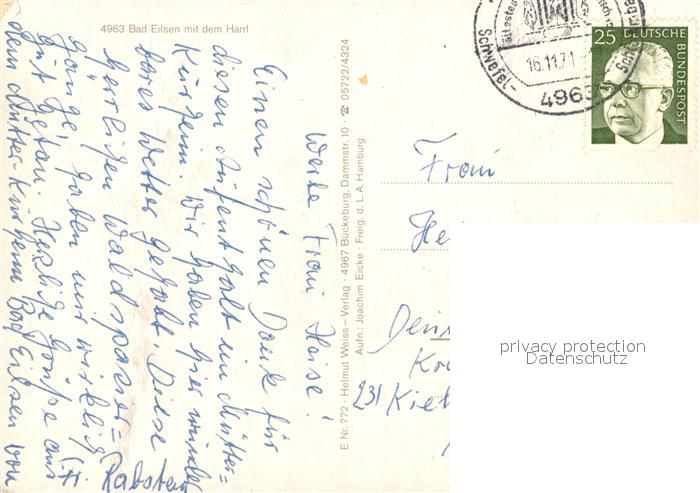 4963 Bad Eilsen mit dem Harrl
Werte Frau Heise!
Einen schönen Dank für
diesen Aufenthalt im Mütter=
Kurheim. Wir haben hier wunder
bares Wetter gehabt. Diese
herrlichen Waldspazier=
gänge, haben uns wirklich
gut getan. Herzliche Grüße aus
dem Mütter-Kurheim Bad Eilsen von
Rabstein
E Nr. 772 · Helmut Weiss-Verlag · 4967 Bückeburg, Dammstr. 10 · ☎ 05722/4324
Aufn.: Joachim Eicke · Freig. d. L. A. Hamburg
Schwefel-
ältestes
16.11.71
4963
25 DEUTSCHE
BUNDESPOST
Frau
He
231 Kiel
privacy protection
Datenschutz